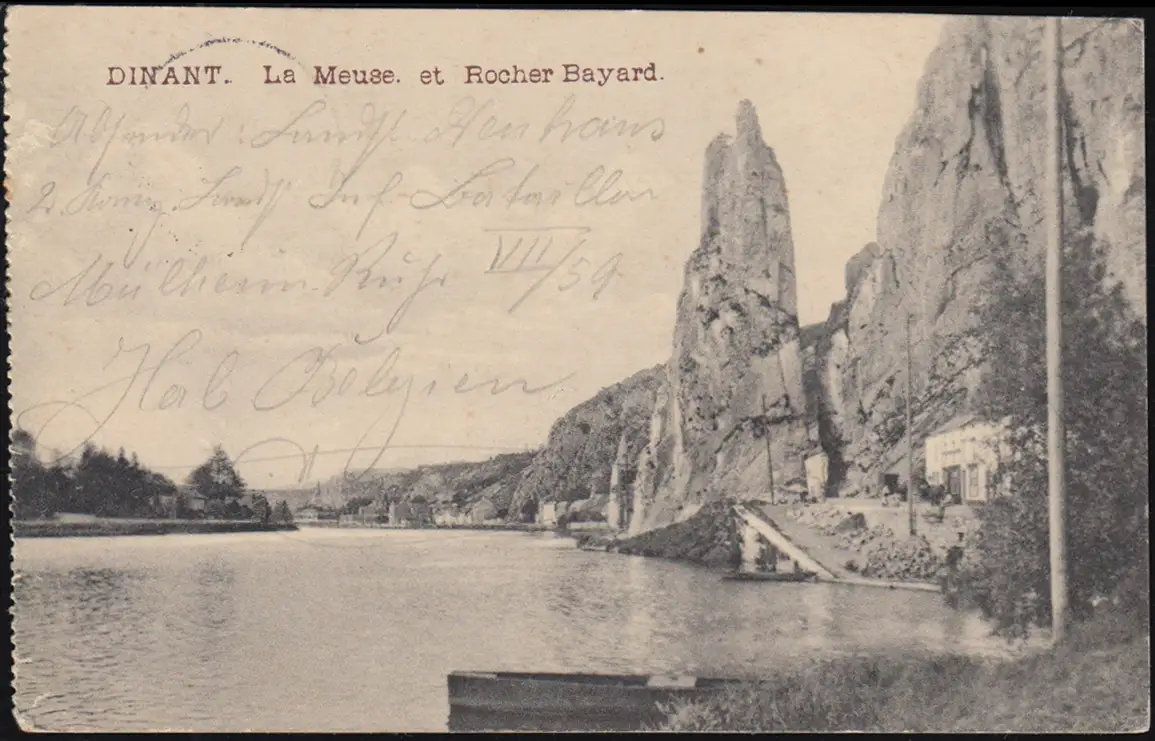 DINANT. La Meuse. et Rocher Bayard.
Absender: Landst. Neuhaus
2. Königl. Landst. Inf. Bataillon
Mülheim Ruhr VII/59
Hab Belgien